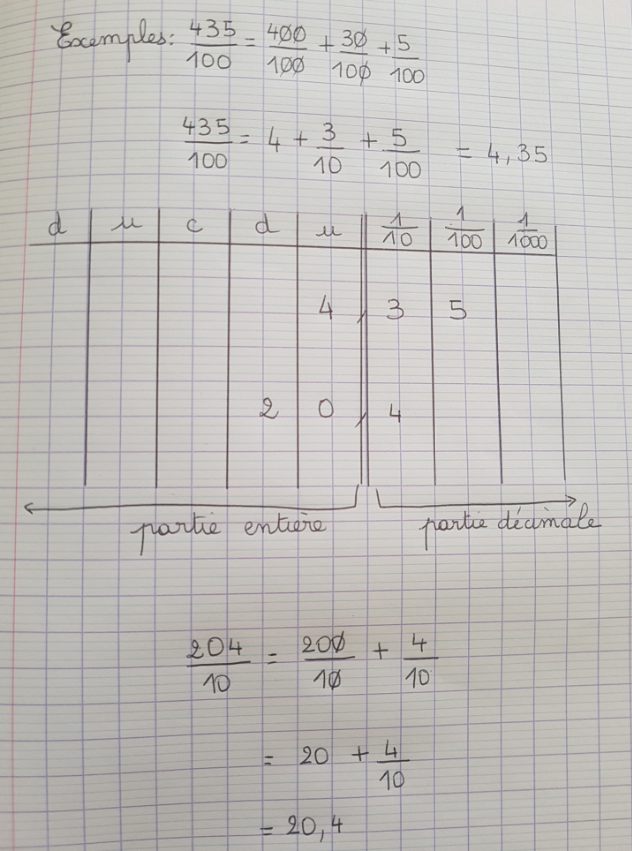 Exemples: 435/100 = 400/100 + 30/100 + 5/100
435/100 = 4 + 3/10 + 5/100 = 4,35
d u c d u 1/10 1/100 1/1000
4, 3 5
2 0, 4
partie entière partie décimale
204/10 = 200/10 + 4/10
= 20 + 4/10
= 20,4